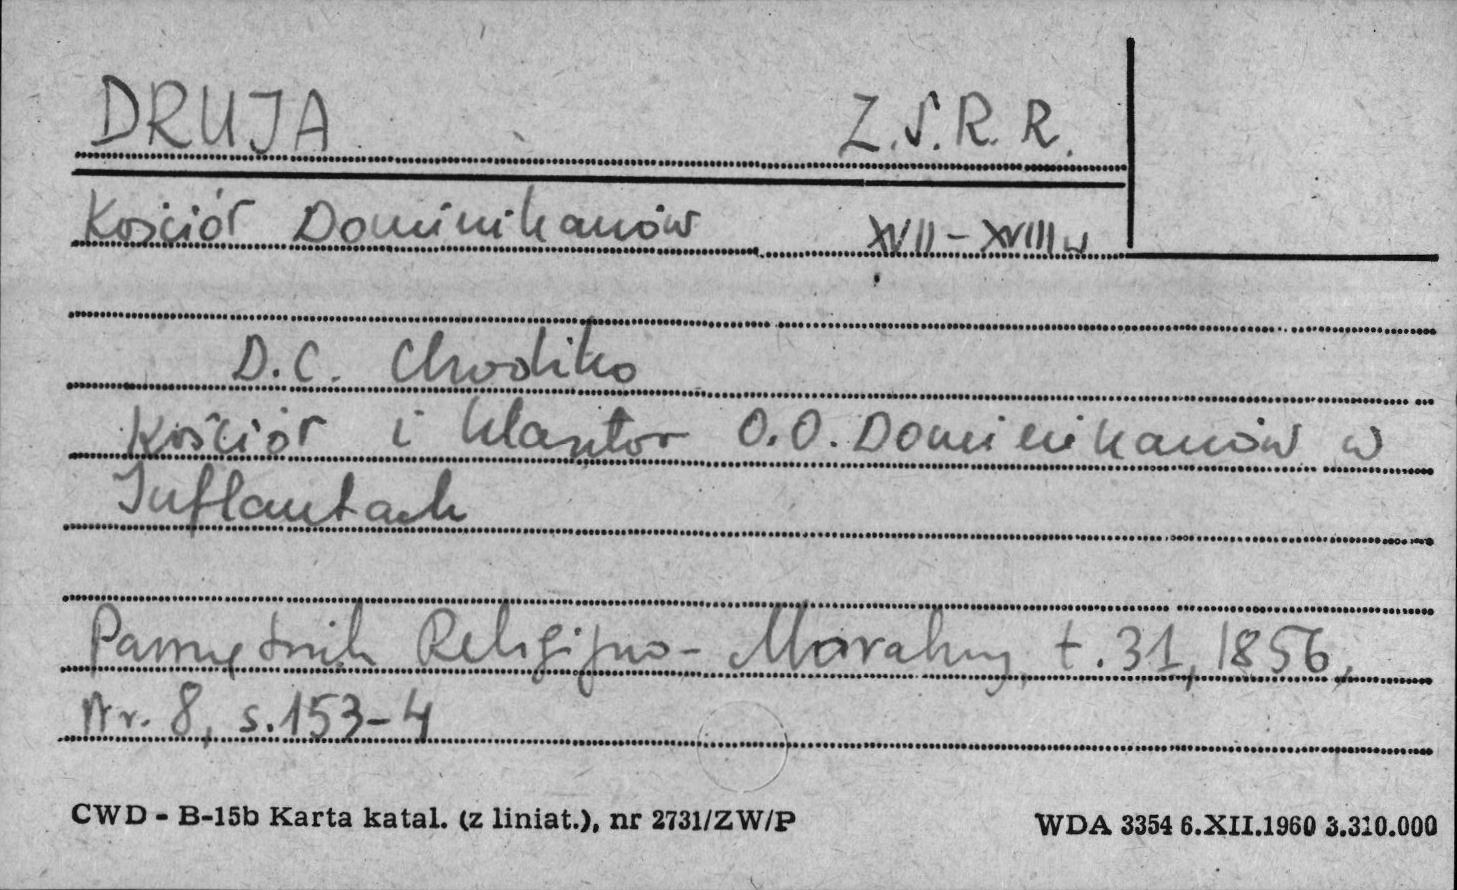 DRUJA Z.S.R.R.
Kościół Dominikanów XVII-XVIII w
D.C. Chodźko
Kościół i klasztor O.O. Dominikanów w
Inflantach
Pamiętnik Religijno-Moralny, t.31, 1856,
Nr. 8, s.153-4
CWD - B-15b Karta katal. (z liniat.), nr 2731/ZW/P WDA 3354 6.XII.1960 3.310.000